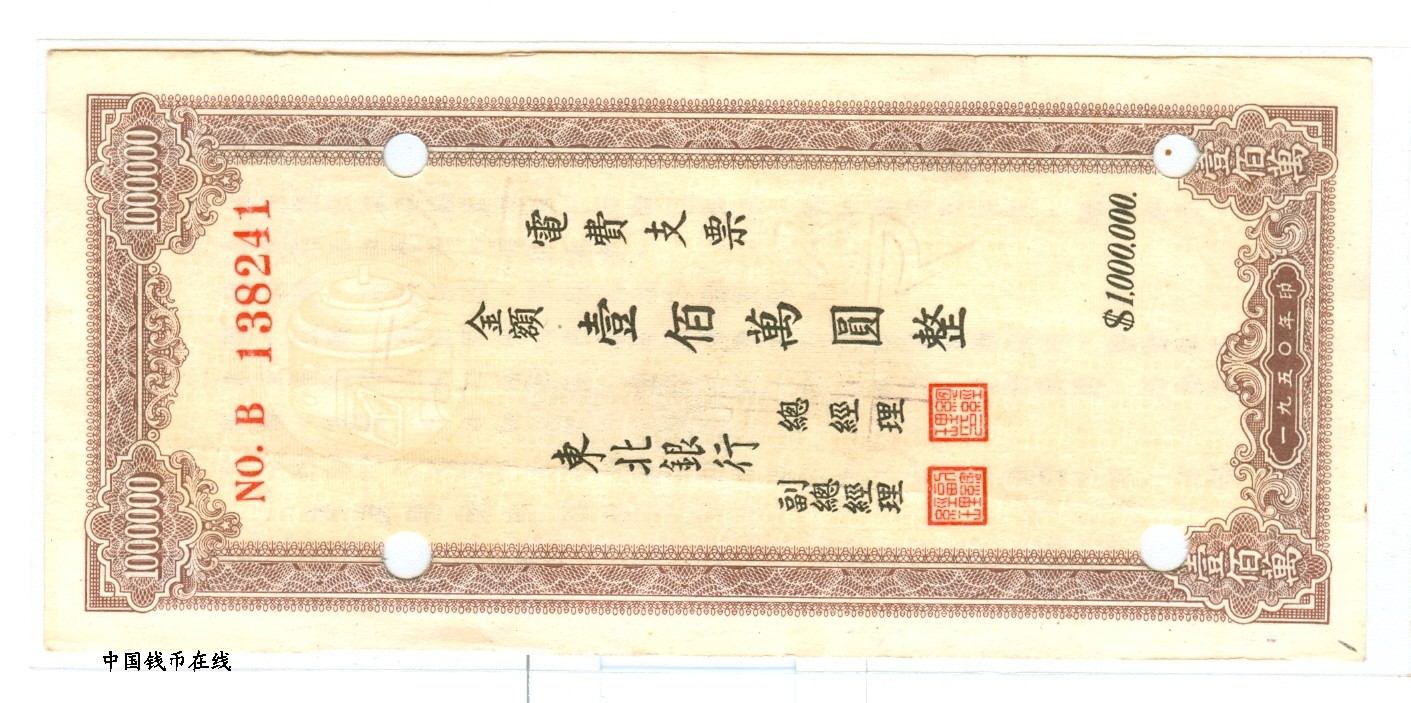 1000000
1000000
NO. B 138241
電費支票
金額 壹佰萬圓整
東北銀行
總經理
副總經理
$1.000.000.
壹佰萬
壹佰萬
一九五〇年印
中国钱币在线